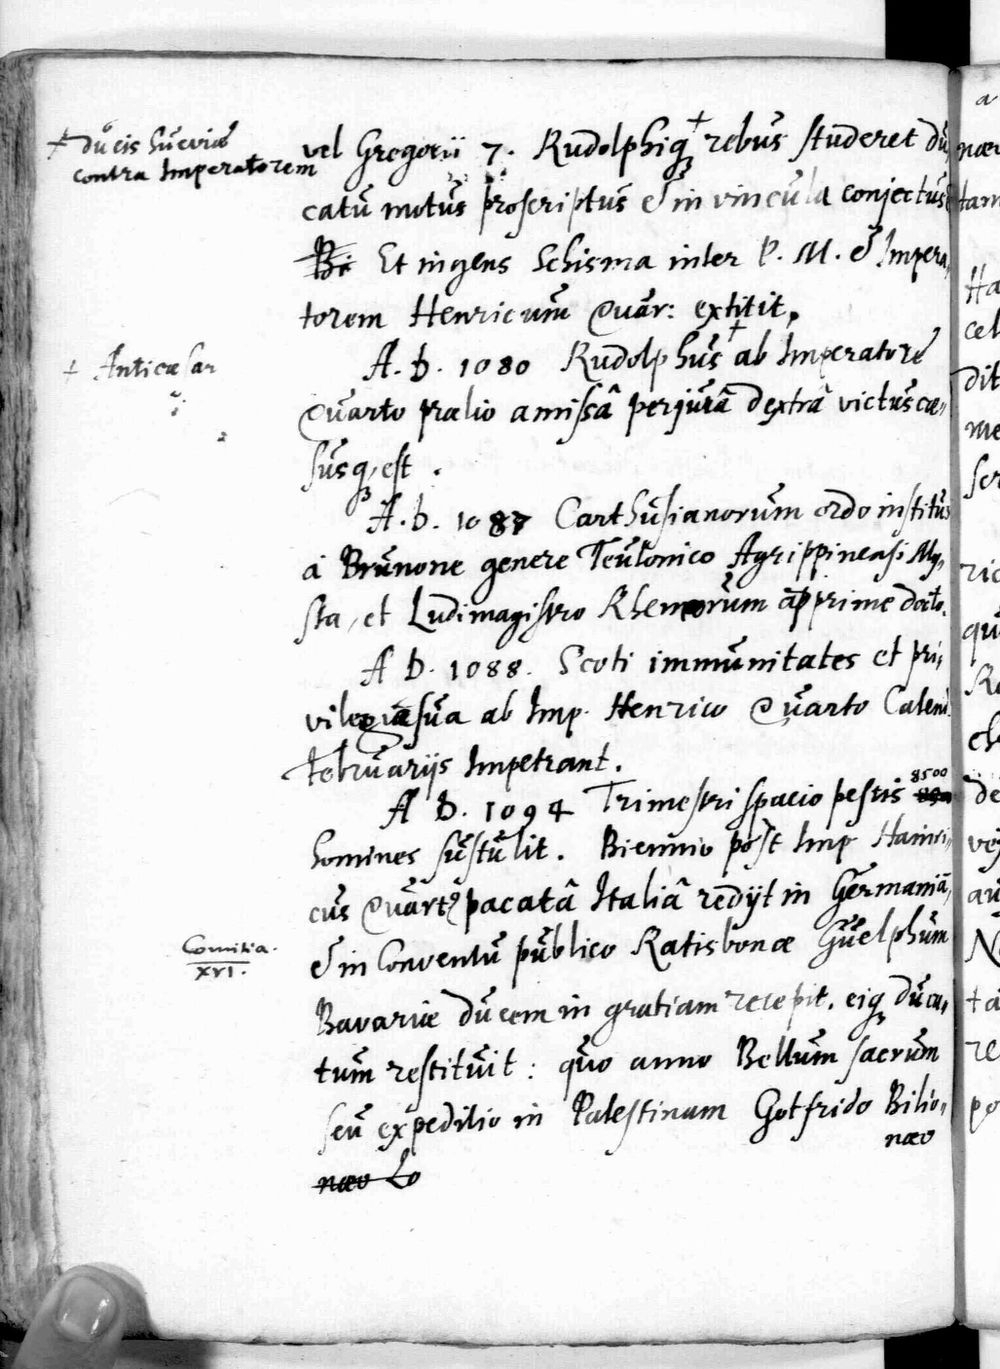 + ducis Sueviæ
contra Imperatorem
vel Gregorii 7. Rudolphiq; + rebus studeret du,
catu motus proscriptus & in vincula conjectus
Et ingens Schisma inter P. M. & Impera,
torem Henricum Quar: extitit.
+ Anticæsar
A. D. 1080 Rudolphus + ab Imperatore
Quarto prælio amissâ perjurâ dextrâ victus cæ,
susq; est.
A. D. 1087 Carthusianorum ordo institus
à Brunone genere Teutonico Agrippinensi My,
sta, et Ludimagistro Rhemorum apprime docto.
A D. 1088. Scoti immunitates et pri,
vilegia sua ab Imp. Henrico Quarto Calend.
februarijs Impetrant.
A D. 1094 Trimestri spacio pestis 8500
homines sustulit. Biennio post Imp Hainri,
cus Quart9 pacatâ Italiâ redijt in Germaniã,
Comitia.
XVI.
& in Conventu publico Ratisbonæ Guelphum
Bavariæ ducem in gratiam recepit. eiq; duca,
tum restituit: quo anno Bellum sacrum
seu expeditio in Palestinam Gotfrido Bilio,
næo
næo Lo